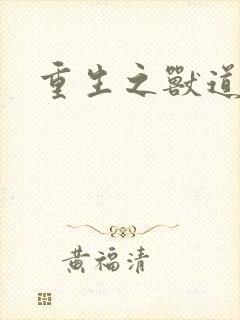 重生之獸道
黄福清